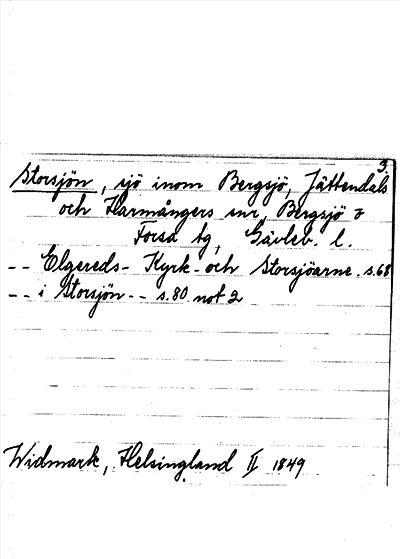 3.
Storsjön, sjö inom Bergsjö, Jättendals
och Harmångers snr, Bergsjö o
Forsa tg, Gävleb. l.
-- Elgereds- Kyrk- och Storsjöarne. s.68
-- i Storsjön -- s.80 not 2
Widmark, Helsingland II 1849